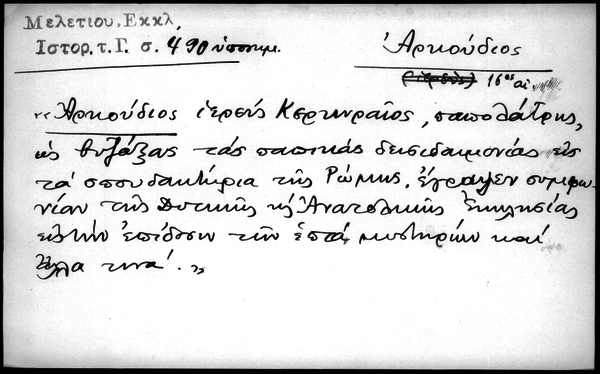 Μελετίου, Εκκλ.
Ἱστορ. τ. Γ. σ. 490 ὑποσημ.
Ἀρκούδιος
(ἱερεὺς) 16ος αἰ.
"Ἀρκούδιος ἱερεὺς Κερκυραῖος, παπολάτρης,
ὡς βυζάξας τὰς παπικὰς δεισιδαιμονίας εἰς
τὰ σπουδαστήρια τῆς Ῥώμης, ἔγραψεν συμφω-
νίαν τῆς Δυτικῆς κ Ἀνατολικῆς Ἐκκλησίας
εἰς τὴν ἐπίδοσιν τῶν ἑπτὰ μυστηρίων καὶ
ἄλλα τινά."